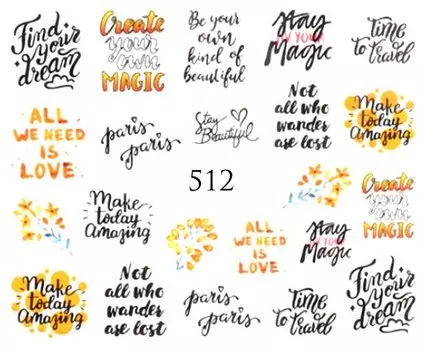 Find
your
dream
Create
your
own
MAGIC
Be your
own
kind of
beautiful
Stay
IN YOUR
Magic
time
to travel
ALL
WE NEED
IS
LOVE
paris
paris
Stay
Beautiful
Not
all who
wander
are lost
Make
today
Amazing
512
Make
today
Amazing
ALL
WE NEED
IS
LOVE
Stay
IN YOUR
Magic
Create
your
own
MAGIC
Make
today
Amazing
Not
all who
wander
are lost
paris
paris
time
to travel
Find
your
dream